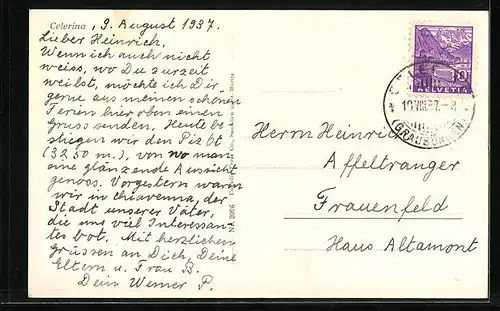 Celerina, 9. August 1937.
Lieber Heinrich,
Wenn ich auch nicht
weiss, wo Du zurzeit
weilst, möchte ich Dir
gerne aus meinen schönen
Ferien hier oben einen
Gruss senden. Heute be-
stiegen wir den Piz
(3250 m.), von wo man
eine glänzende Aussicht
genoss. Vorgestern waren
wir in Chiavenna, der
Stadt unserer Väter,
die uns viel Interessan-
tes bot. Mit herzlichen
Grüssen an Dich, Deine
Eltern u. Frau B.
Dein Werner P.
Herrn Heinrich
Affeltranger
Frauenfeld
Haus Altamont
HELVETIA
10
(GRAUBÜNDEN)
St. Moritz